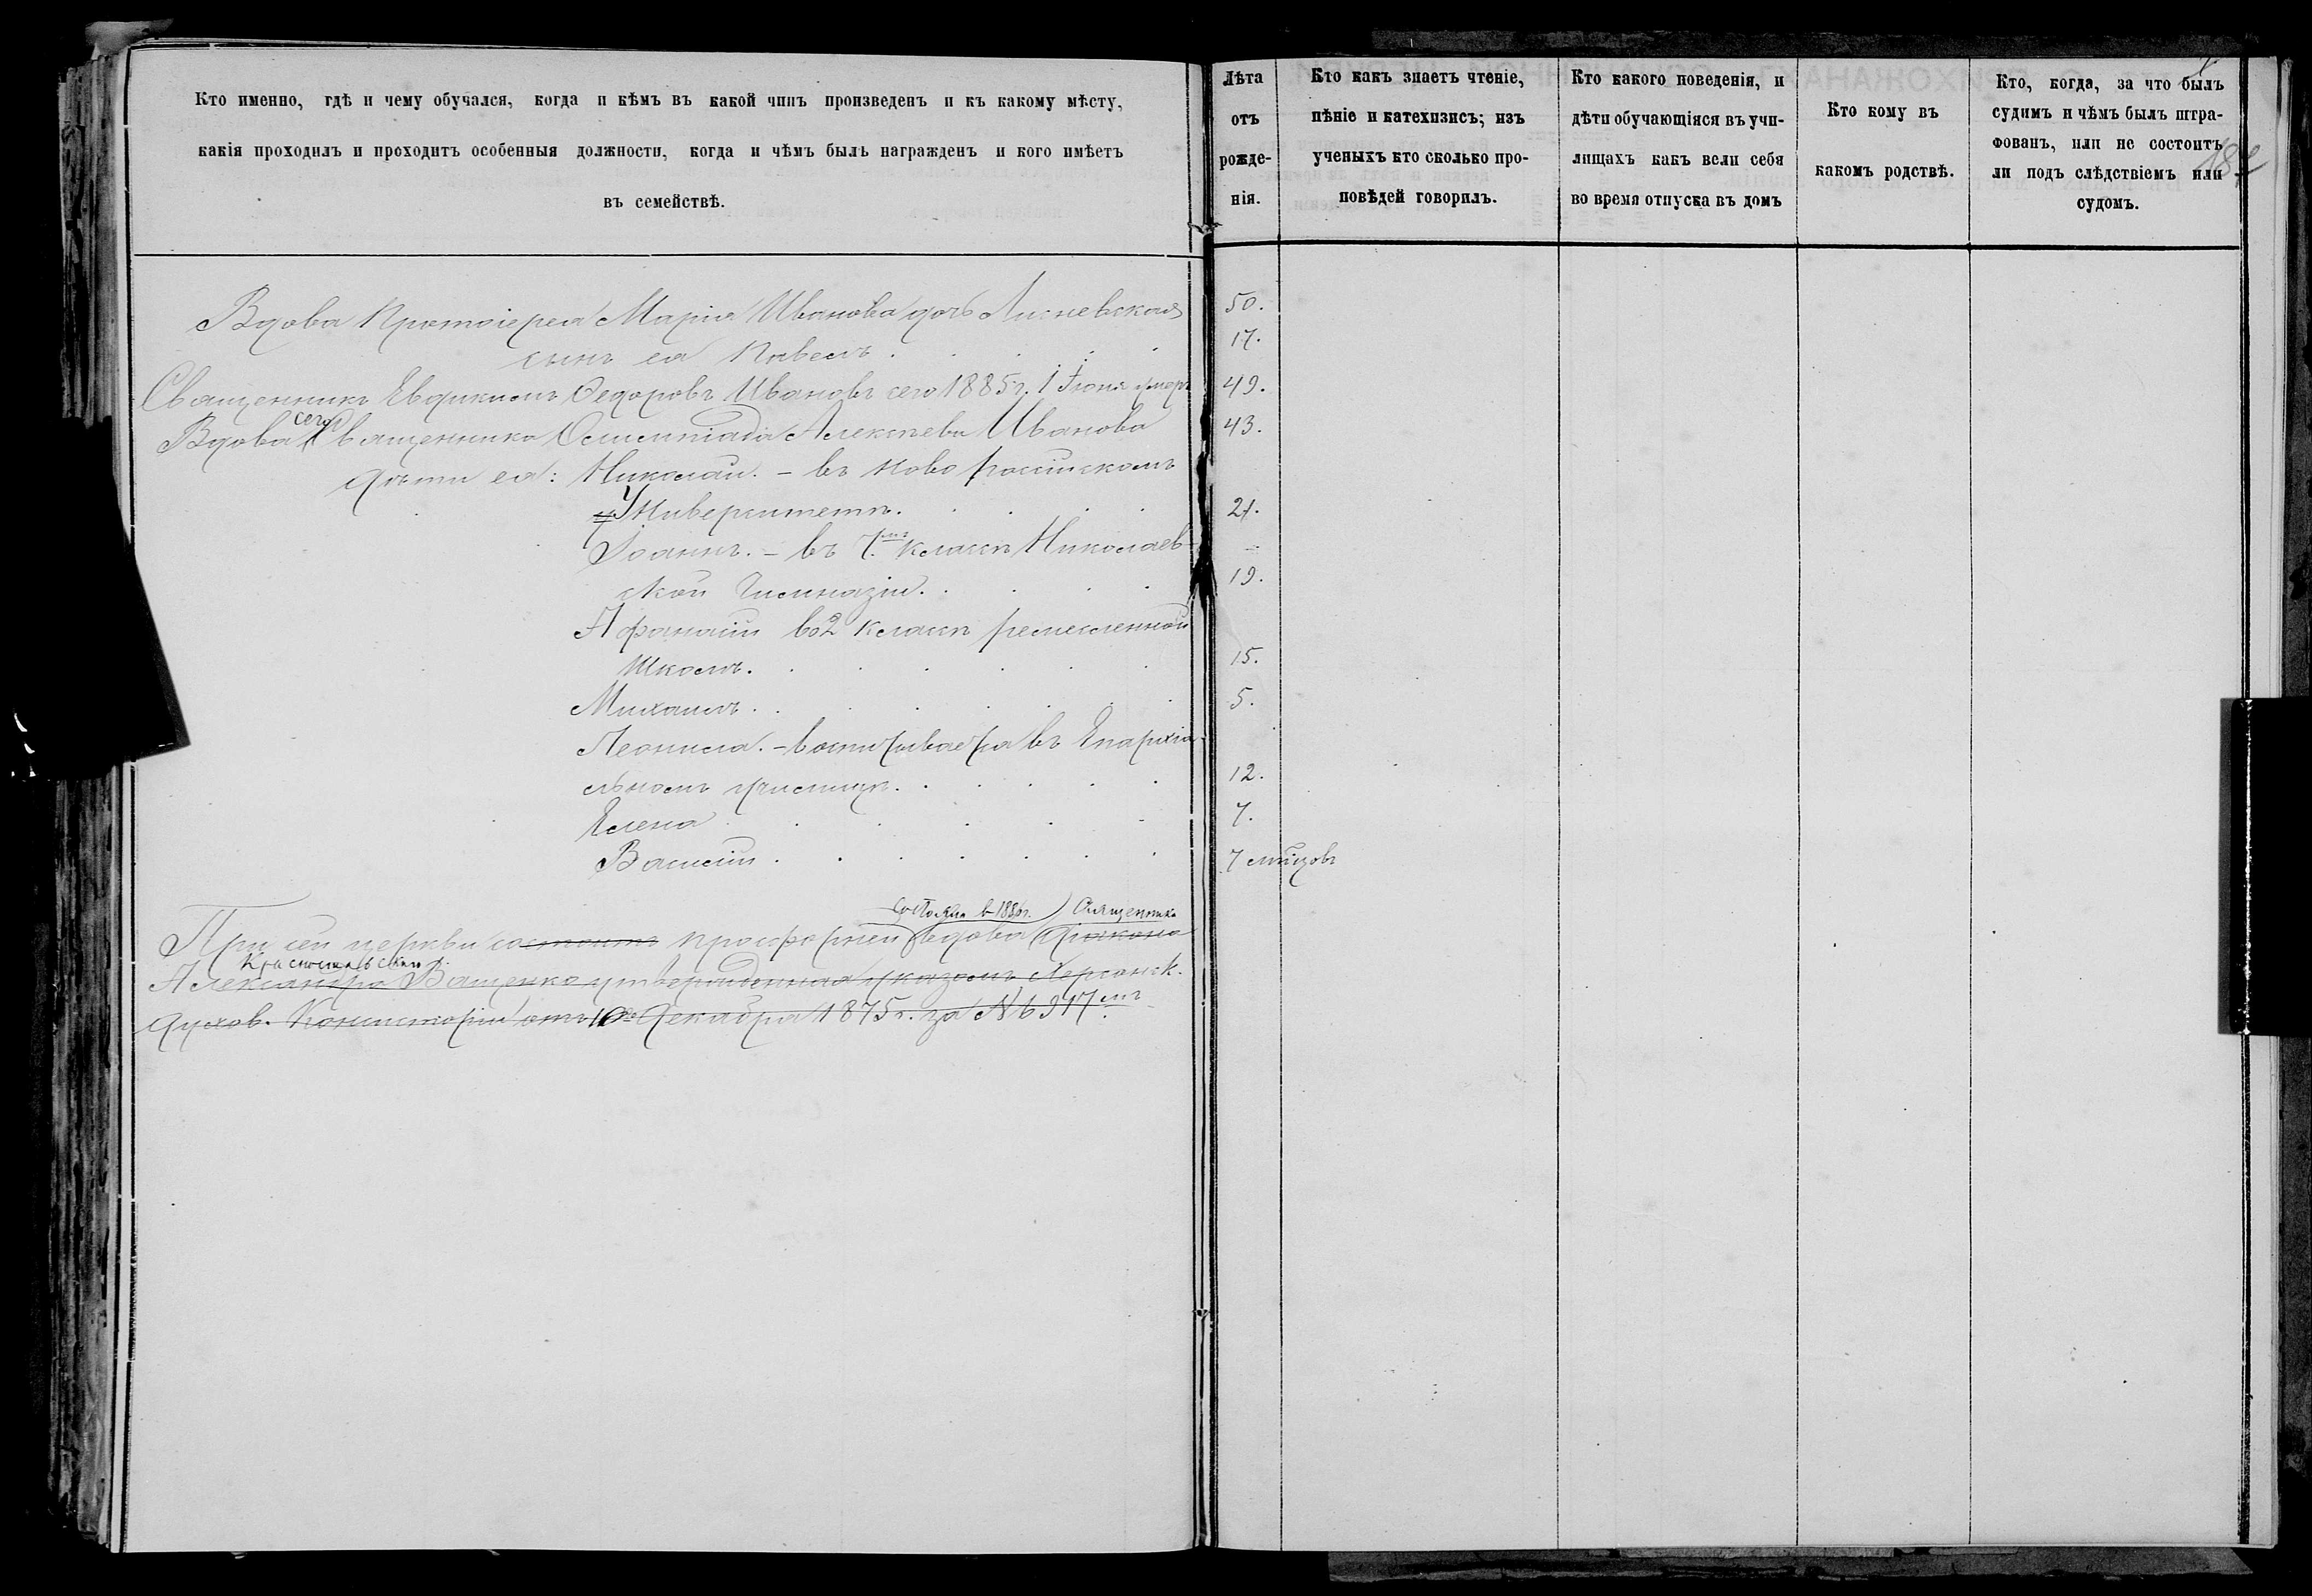 Кто именно, гдѣ и чему обучался, когда и кѣмъ въ какой чинъ произведенъ и къ какому мѣсту,
какія проходилъ и проходитъ особенныя должности, когда и чѣмъ былъ награжденъ и кого имѣетъ
въ семействѣ.
Лѣта
отъ
рожде-
нія.
Кто какъ знаетъ чтеніе,
пѣніе и катехизисъ; изъ
ученыхъ кто сколько про-
повѣдей говорилъ.
Кто какого поведенія, и
дѣти обучающіяся въ учи-
лищахъ какъ вели себя
во время отпуска въ домъ
Кто кому въ
какомъ родствѣ.
Кто, когда, за что былъ
судимъ и чѣмъ былъ штра-
фованъ, или не состоитъ
ли подъ слѣдствіемъ или
судомъ.
Вдова Протоіерея Марія Иванова дочь Лисневская 50.
сынъ ея Павелъ. 17.
Священникъ Евфимій Федоровъ Ивановъ сего 1885 г. 1 Іюня умеръ 49.
Вдова сего Священника Олимпіада Алексѣева Иванова 43.
дѣти ея: Николай. – въ Новороссійскомъ
Университетѣ. 21.
Іоаннъ. – въ 7.мъ классѣ Николаев-
ской Гимназіи. 19.
Афанасій во 2 классѣ ремесленной
школѣ. 15.
Михаилъ. 5.
Леонила. – воспитывается въ Епархіа-
льномъ училищѣ. 12.
Елена 7.
Василій. 7 мѣсяцовъ
состояла въ 1886 г. Священника
При сей церкви состоитъ просфорней вдова Діакона
Александра Ващенко утвержденная указомъ Херсонск.
Духов. Консисторіи отъ 10го Декабря 1875 г. за № 6917мъ